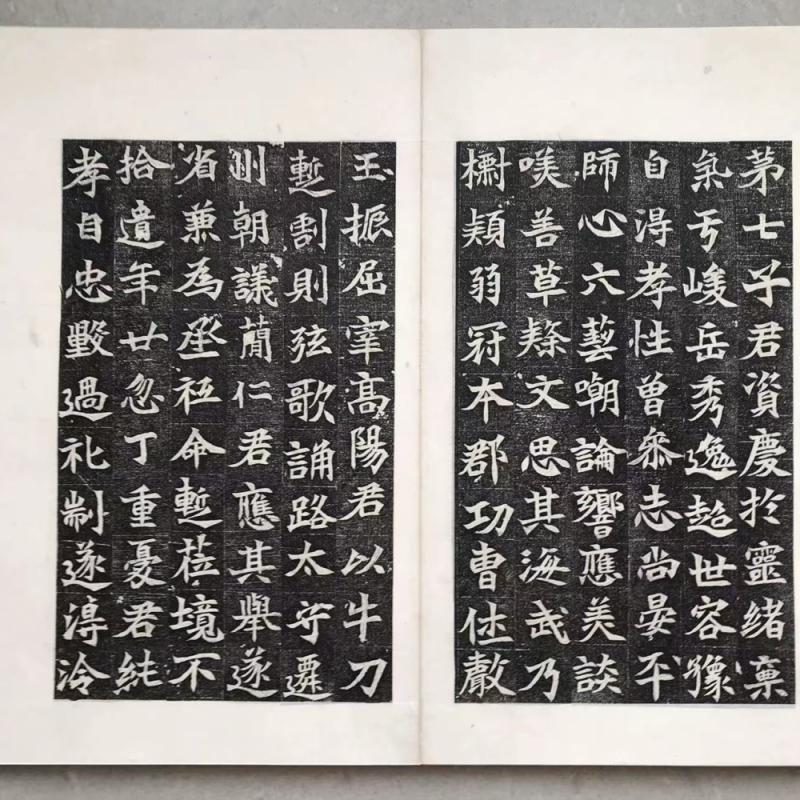 苐七子君資慶於靈緒稟
氣于峻岳秀逸超世容豫
自淂孝性曾叅志尚晏平
師心六藝嘲論響應美談
嘆善草隸文思其海武乃
檦穎弱冠本郡功曹仕聲
玉振屈宰高陽君以牛刀
暫割則弦歌誦路太守遷
州朝議蕳仁君應其舉遂
省兼為丞祗命暫莅境不
拾遺年廿忽丁重憂君純
孝自忠毀過礼制遂淂泠